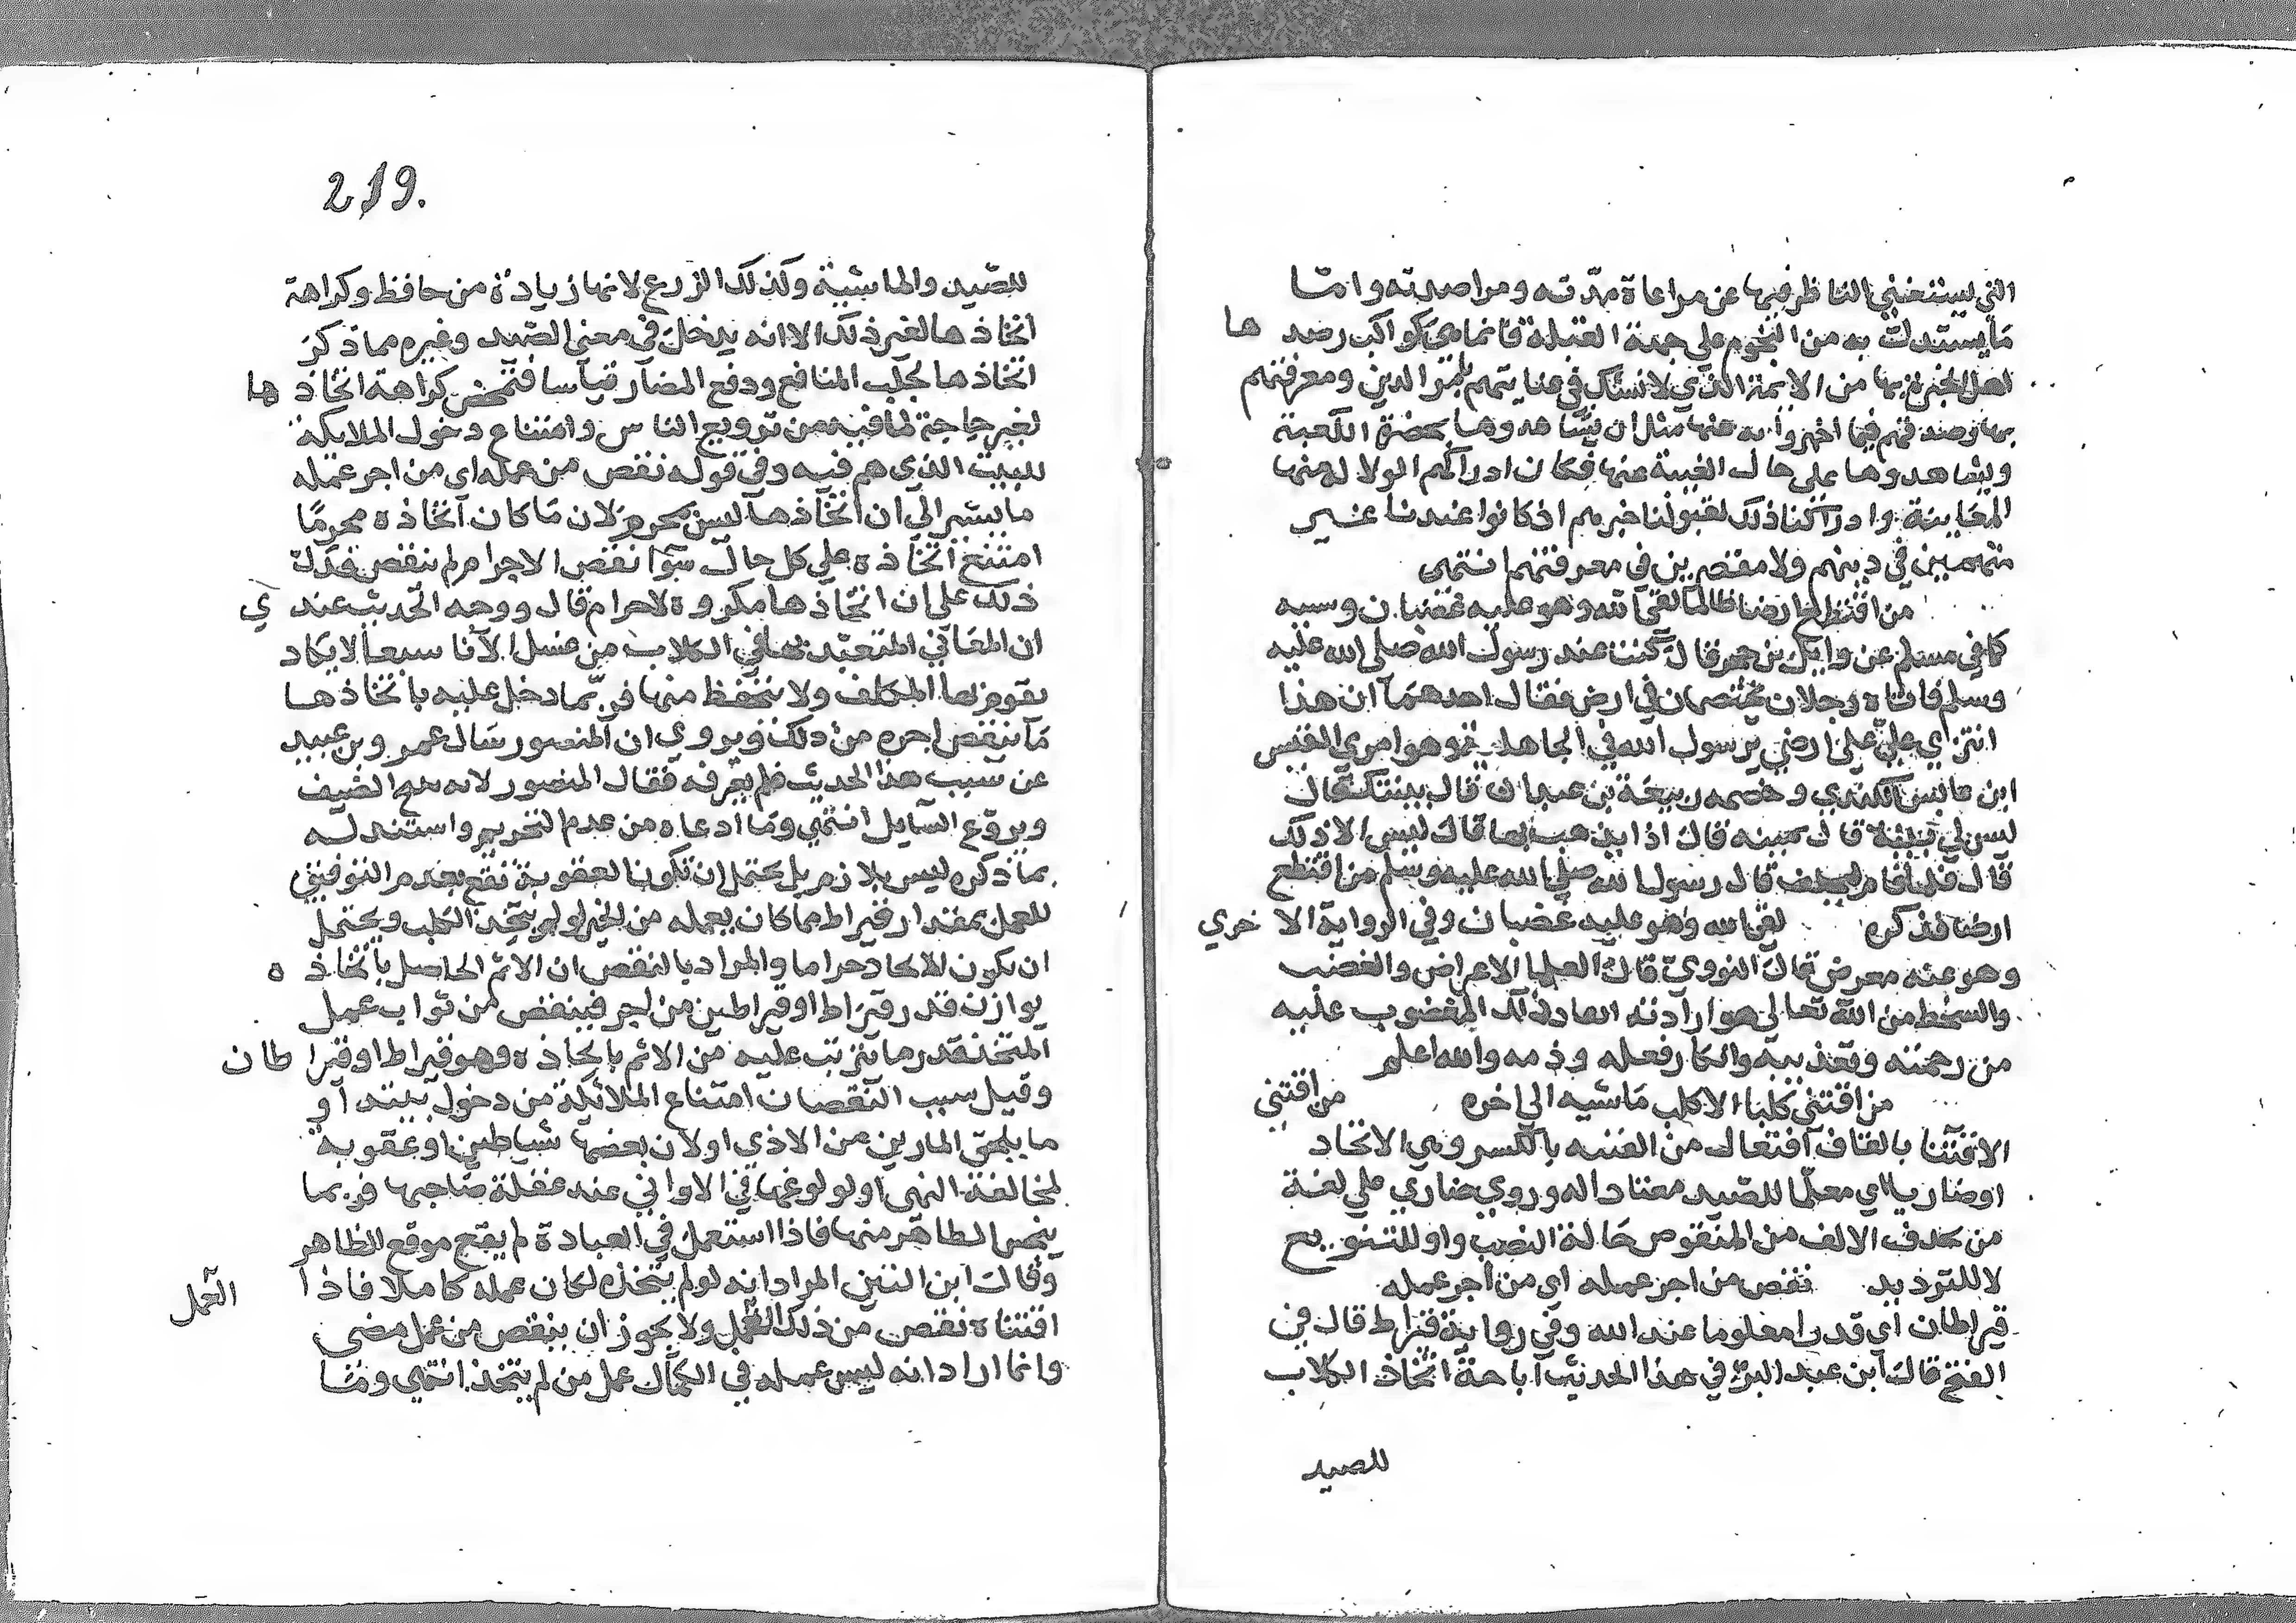 التي يستغني الناظر فيها عن مراعاة مدته ومراصدته واما
ما يستدل به من النجوم على جهة القبلة فانما هي كواكب رصدها
اهل الخبرة بها من الائمة الذي لا نشك في عنايتهم بامر الدين ومعرفتهم
بها وصدقهم فيما اخبروا به عنها مثل ان يشاهدوها بحضرة الكعبة
ويشاهدوها على حال الغيبة عنها فكان ادراكهم الدلالة منها
المعاينة وادراكنا ذلك لقبولنا خبرهم اذ كانوا عندنا غير
متهمين في دينهم ولا مقصرين في معرفتهم انتهى
من اقتطع ارضا ظالما لقي الله وهو عليه غضبان وسببه
كما في مسلم عن وايل بن حجر قال كنت عند رسول الله صلى الله عليه
وسلم فاتاه رجلان يختصمان في ارض فقال احدهما ان هذا
انتزى علي على ارضي يرسول الله في الجاهلية وهو امرئ القيس
ابن عابس الكندي وخصمه ربيعة بن عبدان قال بينتك قال
ليس لي بينة قال يمينه قال اذا يذهب بها قال ليس الا ذلك
قال فلما قام ليحلف قال رسول الله صلى الله عليه وسلم من اقتطع
ارضا فذكره لقي الله وهو عليه غضبان وفي الرواية الاخرى
وهو عنه معرض قال النووي قال العلما الاعراض والغضب
والسخط من الله تعالى هو ارادته ابعاد ذلك المغضوب عليه
من رحمته وتعذيبه وانكار فعله وذمه والله اعلم
من اقتنى كلبا الا كلب ماشيه الى اخره من اقتنى
الاقتنا بالقاف افتعال من القنيه بالكسر وهي الاتخاد
او ضاريا اي معلما للصيد معتادا له وروي ضاري على لغة
من يحذف الالف من المنقوص حالة النصب واو للتنويع
لا للترديد نقص من اجر عمله اي من اجر عمله
قيراطان اي قدرا معلوما عند الله وفي رواية قيراط قال في
الفتح قال ابن عبد البر في هذا الحديث اباحة اتخاذ الكلاب
للصيد
219.
للصيد والماشية وكذلك الزرع لانها زيادة من حافظ وكراهة
اتخاذها لغير ذلك الا انه يدخل في معنى الصيد وغيره مما ذكر
اتخاذها لجلب المنافع ودفع المضار قياسا فتمحض كراهة اتخاذها
لغير حاجة لما فيه من ترويع الناس وامتناع دخول الملايكة
للبيت الذي هم فيه وفي قوله نقص من عمله اي من اجر عمله
ما يشير الى ان اتخاذها ليس بمحرم لان ما كان اتخاذه محرما
امتنع اتخاذه على كل حال سوا نقص الاجر ام لم ينقص فدل
ذلك على ان اتخاذها مكروه لا حرام قال ووجه الحديث عندي
ان المعاني المتعبد بها في الكلاب من غسل الانا سبعا لا يكاد
يقوم بها المكلف ولا يتحفظ منها فربما دخل عليه باتخاذها
ما ينقص اجره من ذلك ويروى ان المنصور سال عمرو بن عبيد
عن سبب هذا الحديث فلم يعرفه فقال المنصور لانه ينبح الضيف
ويروع السايل انتهى وما ادعاه من عدم التحريم واستند له
بما ذكره ليس بلازم بل يحتمل ان تكون العقوبة تقع بعدم التوفيق
للعمل بمقدار قيراط مما كان يعمله من الخير لو لم يتخذ الكلب ويحتمل
ان يكون الاتخاد حراما والمراد بالنقص ان الاثم الحاصل باتخاذه
يوازن قدر قيراط او قيراطين من اجر فينقص من ثواب عمل
المتخذ قدر ما يترتب عليه من الاثم باتخاذه وهو قيراط او قيراطان
وقيل سبب النقصان امتناع الملائكة من دخول بيته او
ما يلحق المارين من الاذى او لان بعضها شياطين او عقوبه
لمخالفة النهي او لولوغها في الاواني عند غفلة صاحبها فربما
ينجس الطاهر منها فاذا استعمل في العبادة لم يقع موقع الطاهر
وقال ابن التين المراد انه لو لم يتخذه لكان عمله كاملا فاذا
اقتناه نقص من ذلك العمل ولا يجوز ان ينقص من عمل مضى العمل
وانما اراد انه ليس عمله في الكمال عمل من لم يتخذ انتهى وما